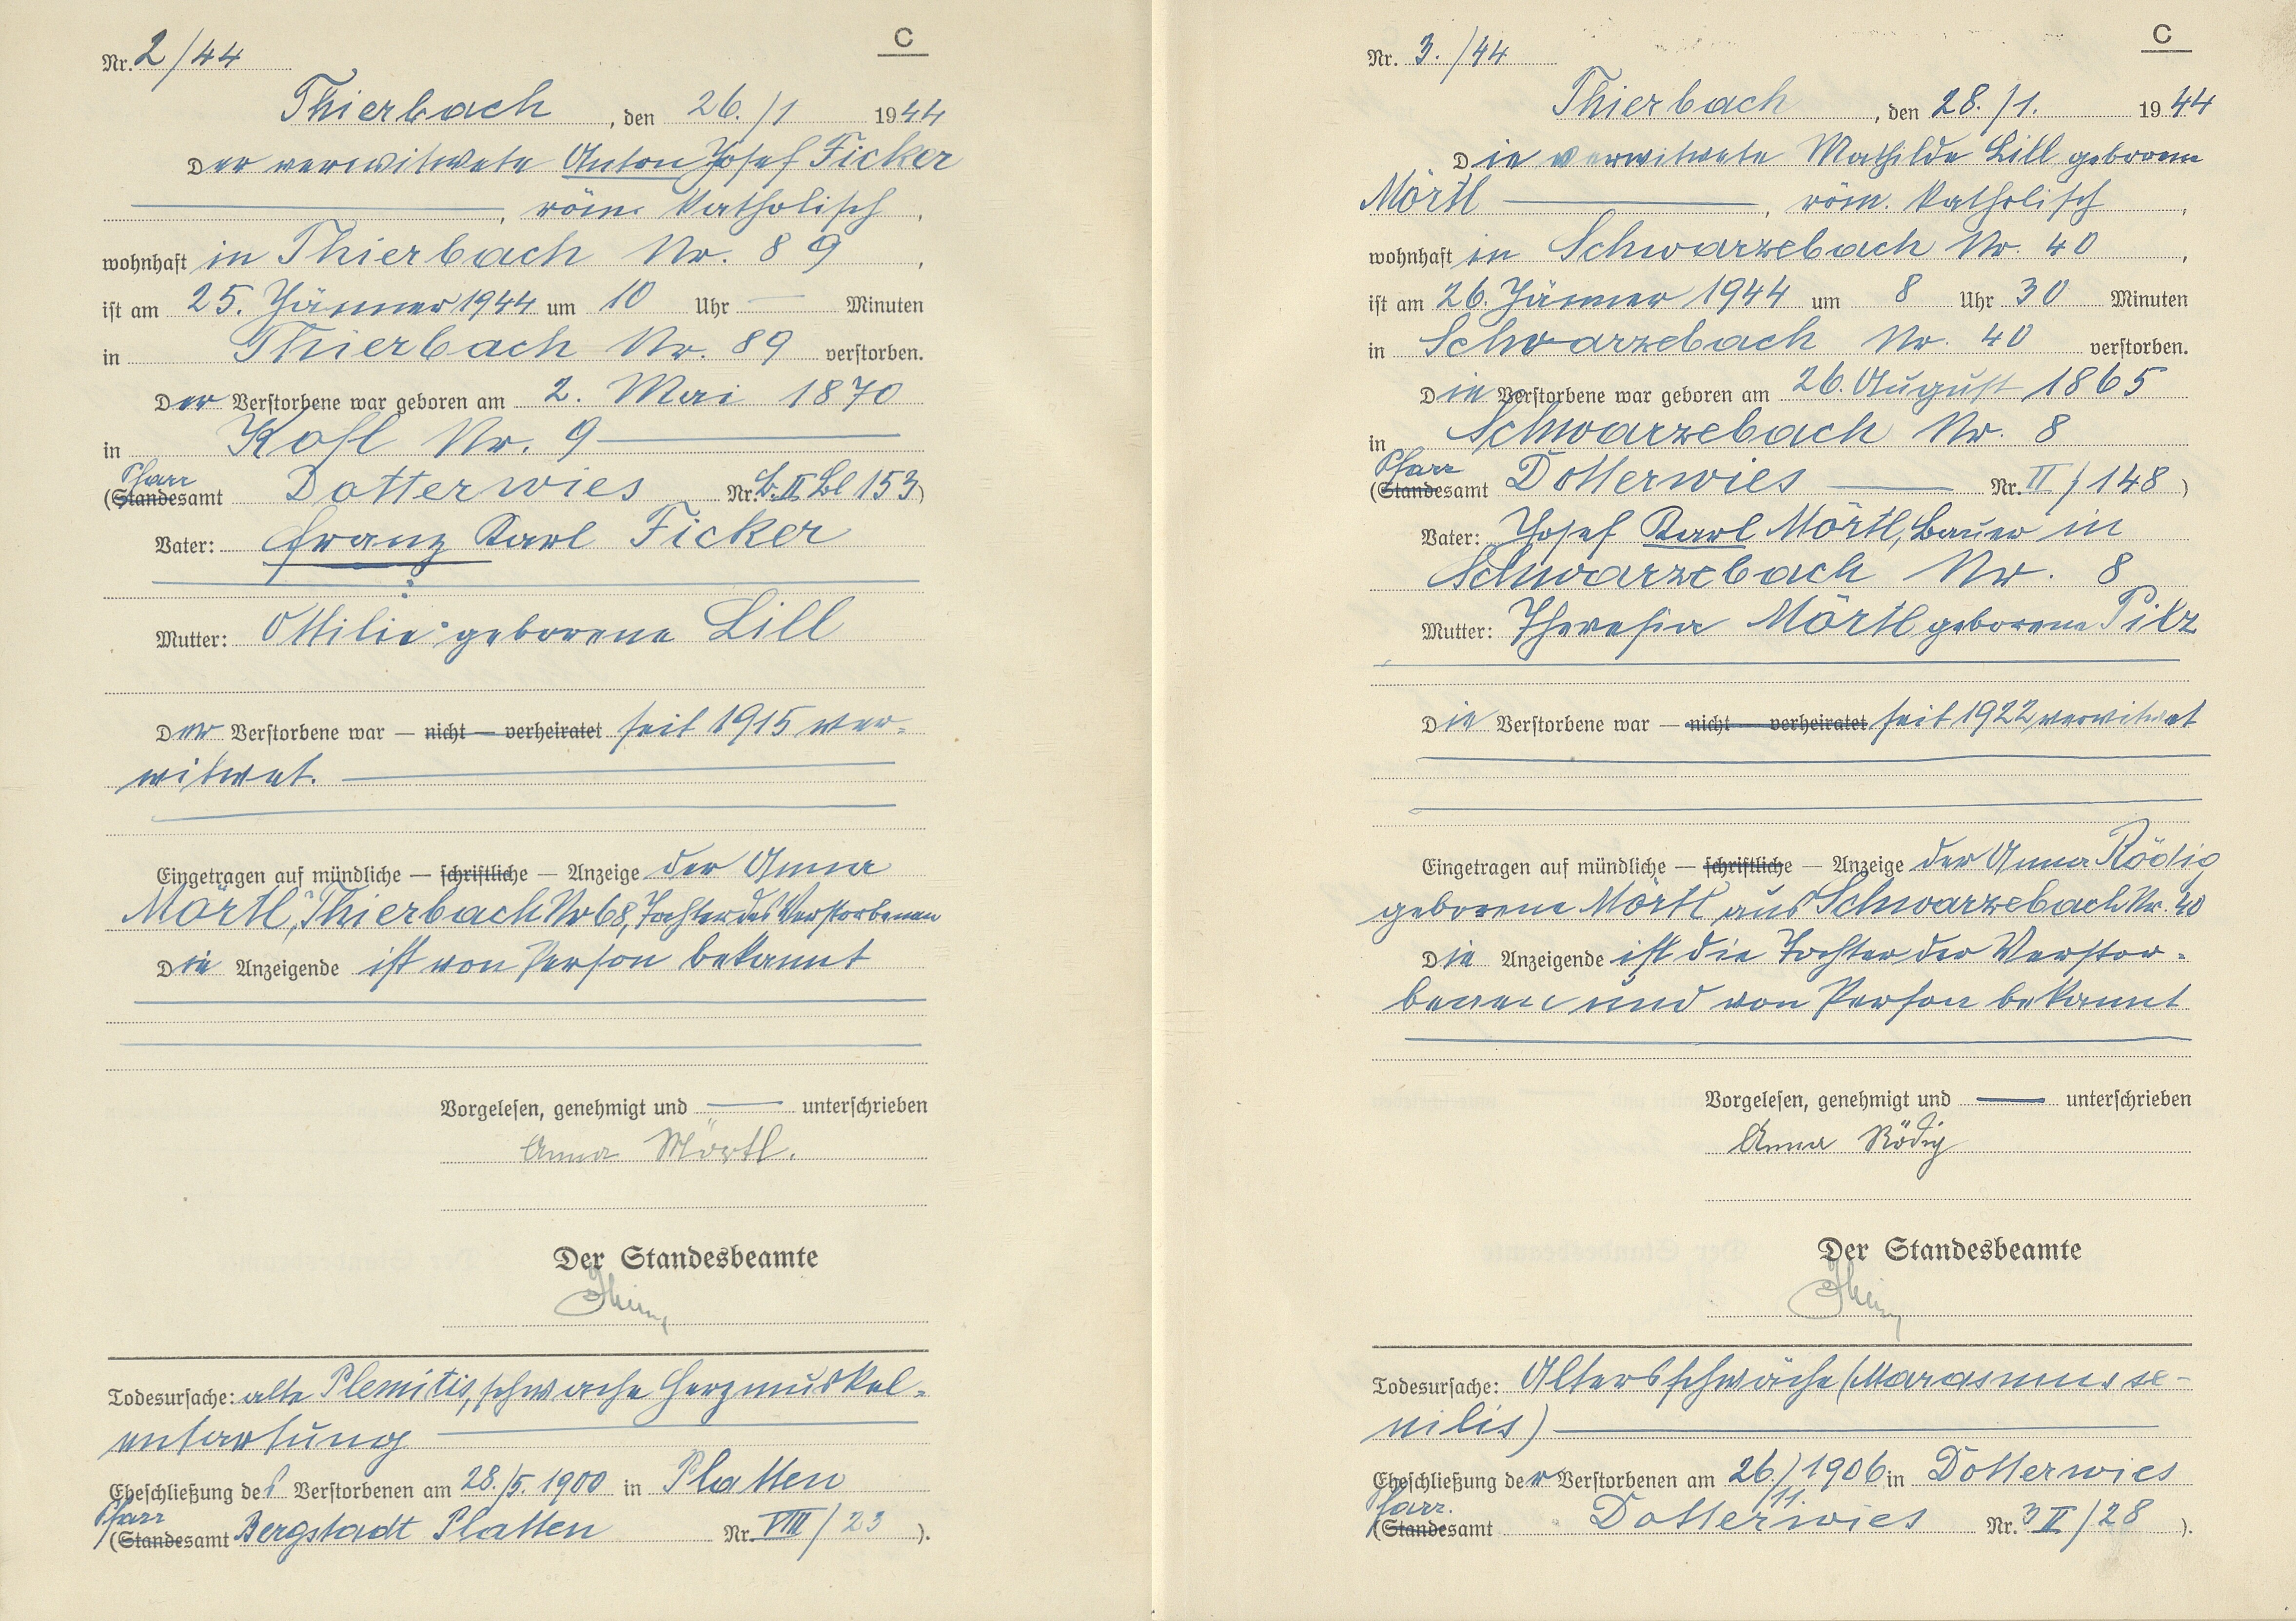 C
Nr. 2/44
Thierbach, den 26./1 1944
Der verwitwete Anton Josef Ficker
, röm. katholisch,
wohnhaft in Thierbach Nr. 89,
ist am 25. Jänner 1944 um 10 Uhr — Minuten
in Thierbach Nr. 89 verstorben.
Der Verstorbene war geboren am 2. Mai 1870
in Kohl Nr. 9
Pfarr
(Standesamt Dotterwies Nr. b. II Bl 153)
Vater: Franz Karl Ficker
Mutter: Ottilie geborene Lill
Der Verstorbene war — nicht — verheiratet seit 1915 ver-
witwet.
Eingetragen auf mündliche — schriftliche — Anzeige der Anna
Mörtl, Thierbach Nr 68, Tochter des Verstorbenen
Die Anzeigende ist von Person bekannt
Vorgelesen, genehmigt und — unterschrieben
Anna Mörtl.
Der Standesbeamte
Todesursache: alte schwache Herzmuskel-
entartung
Eheschließung des Verstorbenen am 28./5. 1900 in Platten
Pfarr
(Standesamt Bergstadt Platten Nr. VIII/23).
C
Nr. 3./44
Thierbach, den 28./1. 1944
Die verwitwete Mathilde Lill geborene
Mörtl —, röm. katholisch,
wohnhaft in Schwarzebach Nr. 40,
ist am 26. Jänner 1944 um 8 Uhr 30 Minuten
in Schwarzebach Nr. 40 verstorben.
Die Verstorbene war geboren am 26. August 1865
in Schwarzebach Nr. 8
Pfarr
(Standesamt Dotterwies — Nr. II/148)
Vater: Josef Karl Mörtl, Bauer in
Schwarzebach Nr. 8
Mutter: Theresia Mörtl geborene Pilz
Die Verstorbene war — nicht — verheiratet seit 1922 verwitwet
Eingetragen auf mündliche — schriftliche — Anzeige der Anna Rödig
geborene Mörtl aus Schwarzebach Nr. 40
Die Anzeigende ist die Tochter der Verstor-
benen und von Person bekannt
Vorgelesen, genehmigt und — unterschrieben
Anna Rödig
Der Standesbeamte
Todesursache: Altersschwäche (Marasmus se-
nilis)
Eheschließung der Verstorbenen am 26./11. 1906 in Dotterwies
Pfarr.
(Standesamt Dotterwies Nr. 3 II/28).